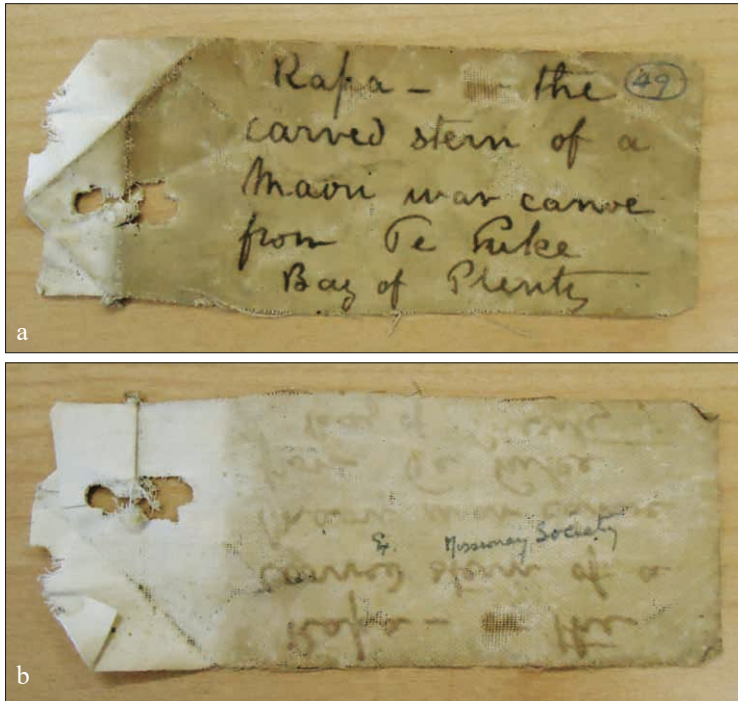 Rapa - the 49
carved stern of a
Maori war canoe
from Te Puke
Bay of Plenty
a
Ex. Missionary Society
b